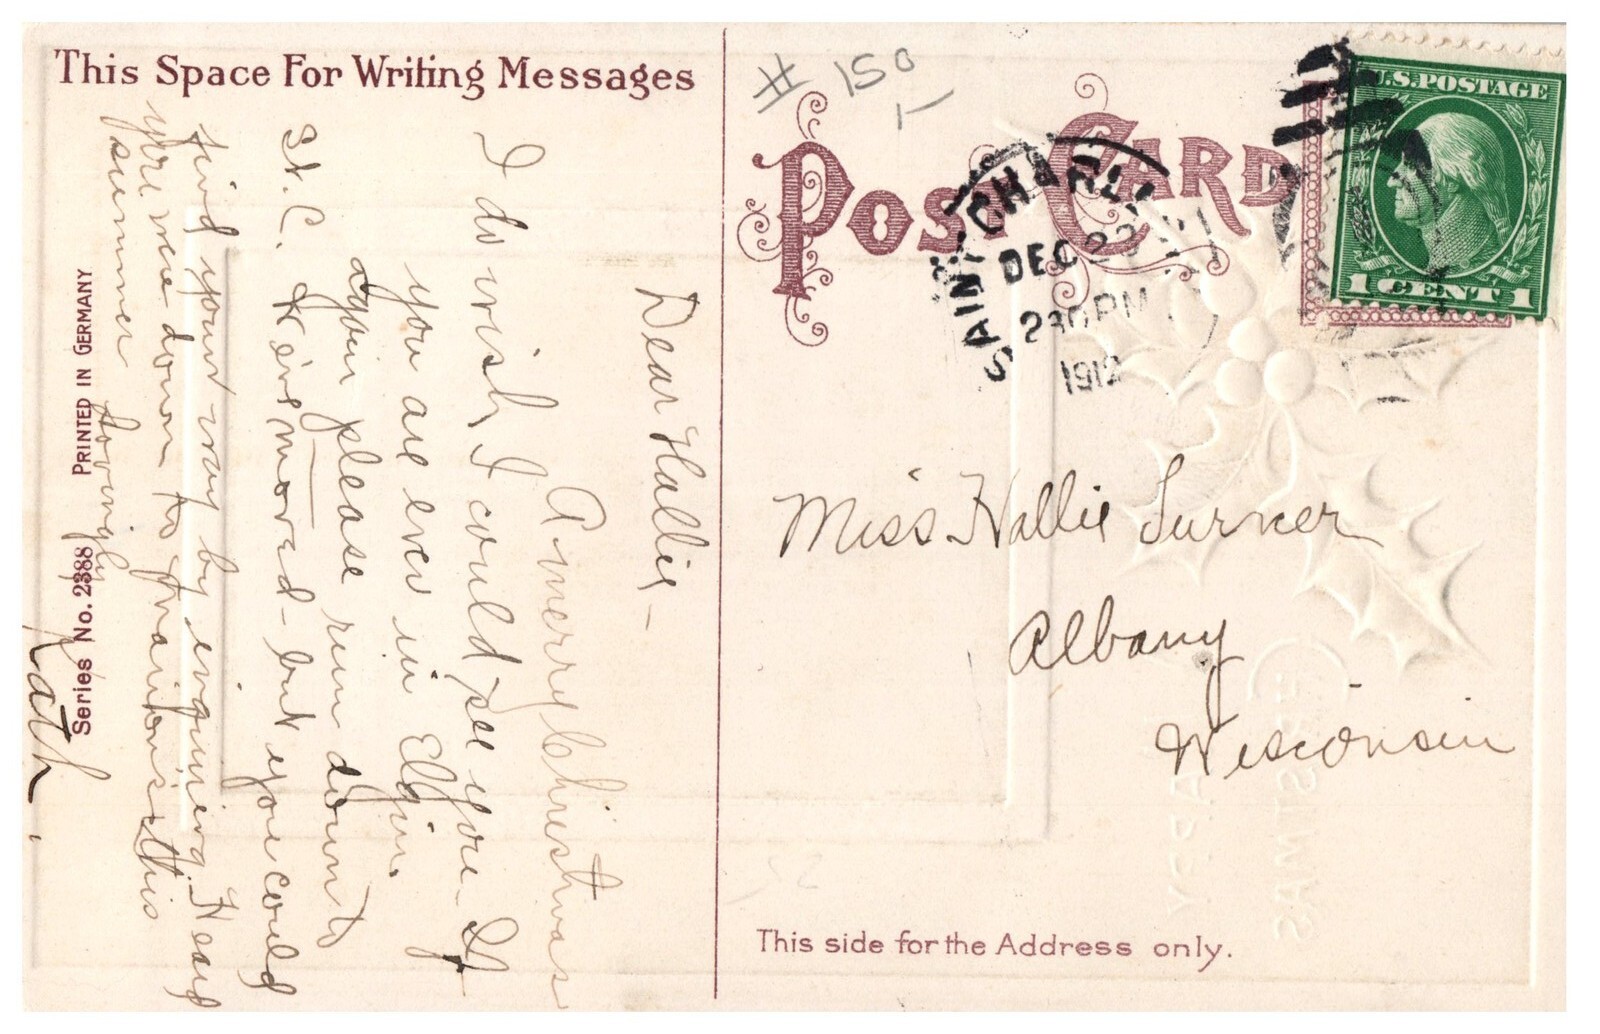 This Space For Writing Messages
Dear Hallie -
A merry Christmas
I do wish I could see you - If
you are ever in Elgin.
again please run down to
St. C. We've moved - but you could
find your way by inquiring. Heard
you were down to this
summer
Lovingly
Kath.
Series No. 2388 PRINTED IN GERMANY
# 150
1-
POST CARD
SAINT CHARL
DEC 23
230 PM
1912
U.S. POSTAGE
1 CENT 1
Miss Hallie Turner
Albany
Wisconsin
This side for the Address only.